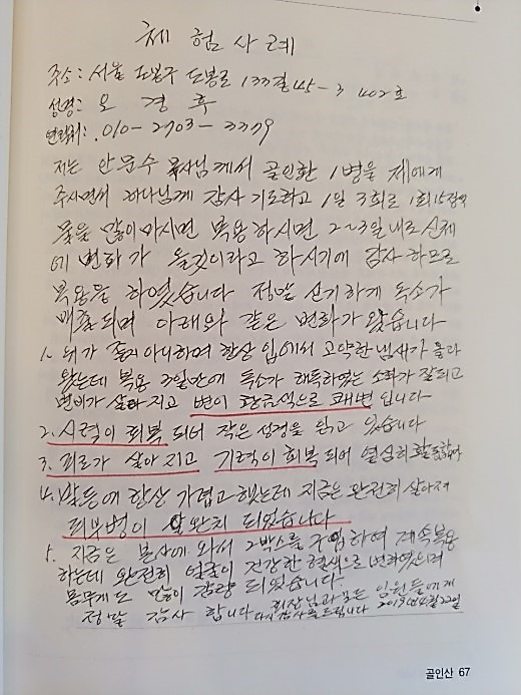 체험사례
주소: 서울 도봉구 도봉로 133길 45-3 402호
성명: 오경후
연락처: 010-2903-3379
저는 안문수 목사님께서 골인환 1병을 제에게
주시면서 하나님께 감사 기도하고 1일 3회로 1회 15정씩
물을 많이 마시면 복용하시면 2~3일내로 신체
에 변화가 올것이라고 하시기에 감사하므로
복용을 하였습니다 정말 신기하게 독소가
배출되며 아래와 같은 변화가 왔습니다
1. 위가 좋지아니하여 항상 입에서 고약한 냄새가 올라
왔는데 복용 3일만에 독소가 해독하였는 소화가 잘되고
변비가 살아지고 변이 황금색으로 쾌변 입니다
2. 시력이 회복 되너 작은 성경을 읽고 있습니다
3. 피로가 살아지고 기력이 회복 되어 열심히
4. 항상 가렵고 했는데 지금은 완전히 살아져
피부병이 완치 되었습니다
5. 지금은 본사에 와서 2박스를 구입하여 계속복용
하는데 완전히 얼굴이 건강한 혈색으로 변화하였으며
몸무게도 많이 감량 되었습니다
정말 감사 합니다 회장님과 모든 임원들에게
다시 감사를 드립니다 2019년4월22일
골인산 67